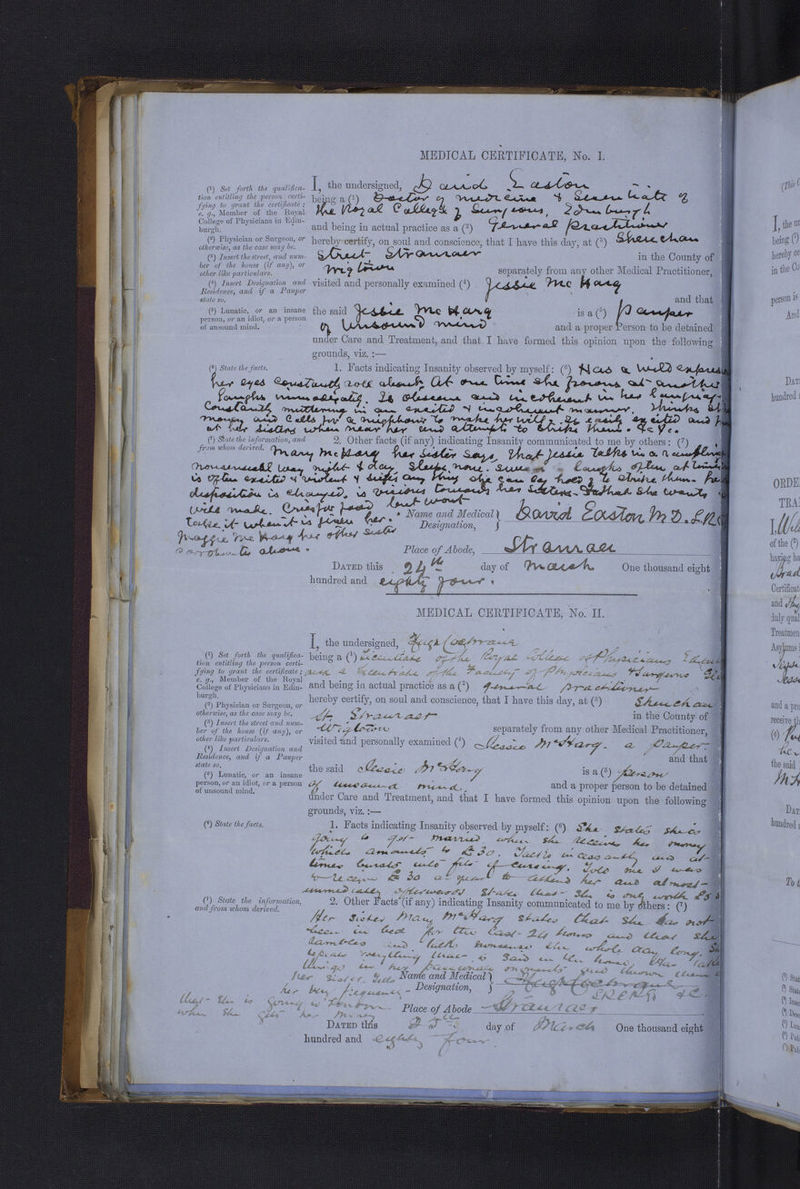 MEDICAL CERTIFICATE, No. I.
(¹) Set forth the qualifica-
tion entitling the person certi-
fying to grant the certificate;
e. g., Member of the Royal
College of Physicians in Edin-
burgh.
(²) Physician or Surgeon, or
otherwise, as the case may be.
(³) Insert the street, and num-
ber of the house (if any), or
other like particulars.
(⁴) Insert Designation and
Residence, and if a Pauper
state so.
(⁵) Lunatic, or an insane
person, or an idiot, or a person
of unsound mind.
I, the undersigned, David Easton
being a (¹) Doctor of medicine & Licentiate of
the Royal College of Surgeons, Edinburgh
and being in actual practice as a (²) General Practitioner
hereby certify, on soul and conscience, that I have this day, at (³) Sheuchan
Street Stranraer in the County of
Wigtown separately from any other Medical Practitioner,
visited and personally examined (⁴) Jessie McHarg
and that
the said Jessie McHarg is a (⁵) Pauper
of Unsound mind and a proper Person to be detained
under Care and Treatment, and that I have formed this opinion upon the following
grounds, viz. :—
(⁶) State the facts.
1. Facts indicating Insanity observed by myself: (⁶) Has a wild
her eyes constantly roll about. At one time she frowns at another
laughs immoderately. Is obscene and incoherent in her
Constantly muttering in an excited & incoherent manner. Thinks
money and Calls for a neighbour to make her will. Is
at her sisters when near her and attempts to strike them. &c.
(⁷) State the information, and
from whom derived.
2. Other facts (if any) indicating Insanity communicated to me by others: (⁷)
Mary McHarg her sister says, that Jessie talks in a rambling
nonsensical way night & day. Sleeps none. laughs often at times
is often excited & violent & lifts any thing she can lay hold of to strike them.
disposition is changed, is vicious towards her sisters. she wants
will make. Cries for food but wont
take it when it is given her.
Maggie McHarg her other sister
above.
Name and Medical Designation, } David Easton M.D.
Place of Abode, Stranraer
DATED this 24th day of March One thousand eight
hundred and eighty four.
MEDICAL CERTIFICATE, No. II.
(¹) Set forth the qualifica-
tion entitling the person certi-
fying to grant the certificate;
e. g., Member of the Royal
College of Physicians in Edin-
burgh.
(²) Physician or Surgeon, or
otherwise, as the case may be.
(³) Insert the street and num-
ber of the house (if any), or
other like particulars.
(⁴) Insert Designation and
Residence, and if a Pauper
state so.
(⁵) Lunatic, or an insane
person, or an idiot, or a person
of unsound mind.
I, the undersigned, Hugh Cochrane
being a (¹) Licentiate of the Royal College of Physicians
and a Licentiate of the Faculty of Physicians & Surgeons
and being in actual practice as a (²) general practitioner
hereby certify, on soul and conscience, that I have this day, at (³) Sheuchan
St. Stranraer in the County of
Wigtown separately from any other Medical Practitioner,
visited and personally examined (⁴) Jessie McHarg. a Pauper.
and that
the said Jessie McHarg is a (⁵) person
of unsound mind. and a proper person to be detained
under Care and Treatment, and that I have formed this opinion upon the following
grounds, viz. :—
(⁶) State the facts.
1. Facts indicating Insanity observed by myself: (⁶) She states she is
going to get married when she receives her money
which amounts to £30. Talks incessantly and at
times bursts into fits of cursing. Told me I was
to receive £30 a year to attend her and almost
immediately afterwards states that she is only worth £5
(⁷) State the information,
and from whom derived.
2. Other Facts (if any) indicating Insanity communicated to me by others: (⁷)
Her sister Mary McHarg states that she has not
been in bed for the last 24 hours and that she
rambles and talks nonsense the whole day long.
repeats everything that is said in the house.
things in her and thrown them
her sister.
her frequently
that she is going to London
when she gets her money
Name and Medical Designation, } Hugh Cochrane
L.R.C.P.E. &c.
Place of Abode Stranraer
DATED this day of March One thousand eight
hundred and eighty four
I, the un
being (²)
hereby ce
in the Co
person is
And
DAT
hundred
ORDE
TRA
of the (²)
having ha
Certificat
and
duly qual
Treatmen
Asylums
and a pro
receive th
the said
DAT
hundred
To t